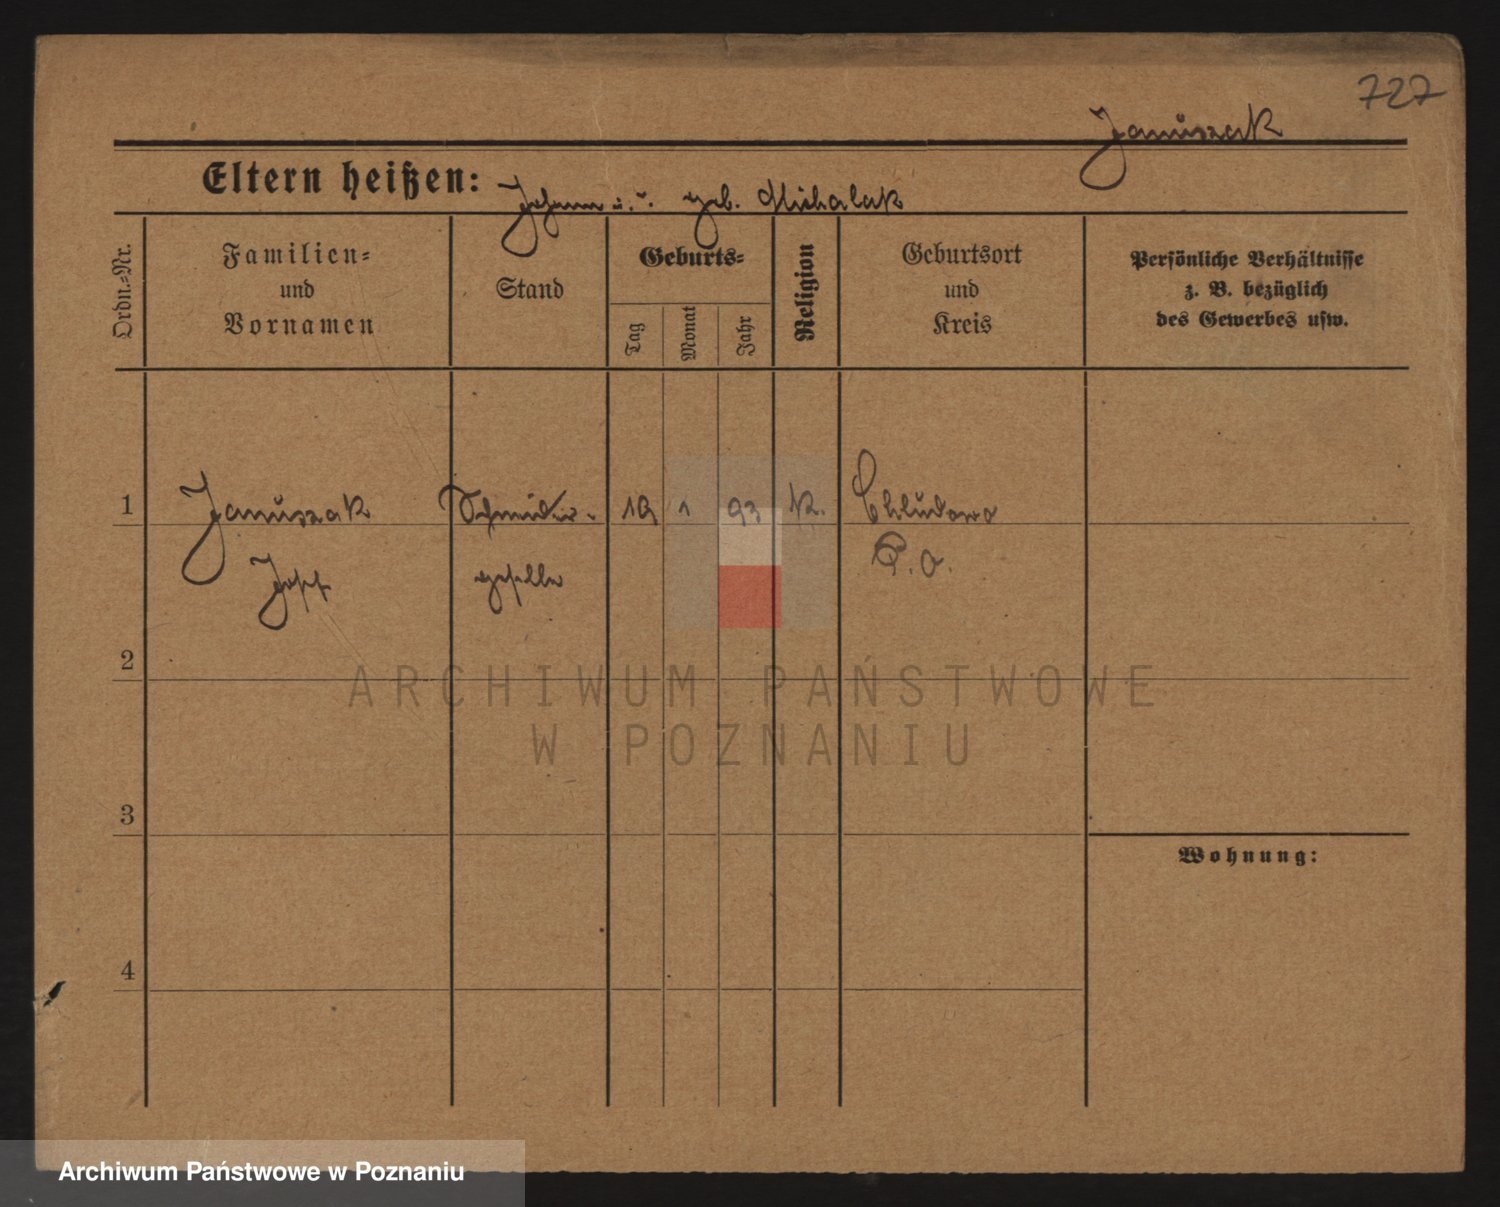 727
Januszak
Eltern heißen: Johann u. geb. Michalak
Ordn.-Nr.
Familien-
und
Vornamen
Stand
Geburts-
Tag
Monat
Jahr
Religion
Geburtsort
und
Kreis
Persönliche Verhältnisse
z. B. bezüglich
des Gewerbes usw.
1
Januszak
Schneider-
19
1
93
K.
Chludowo
Josef
geselle
P. O.
2
ARCHIWUM PAŃSTWOWE
W POZNANIU
3
Wohnung:
4
Archiwum Państwowe w Poznaniu